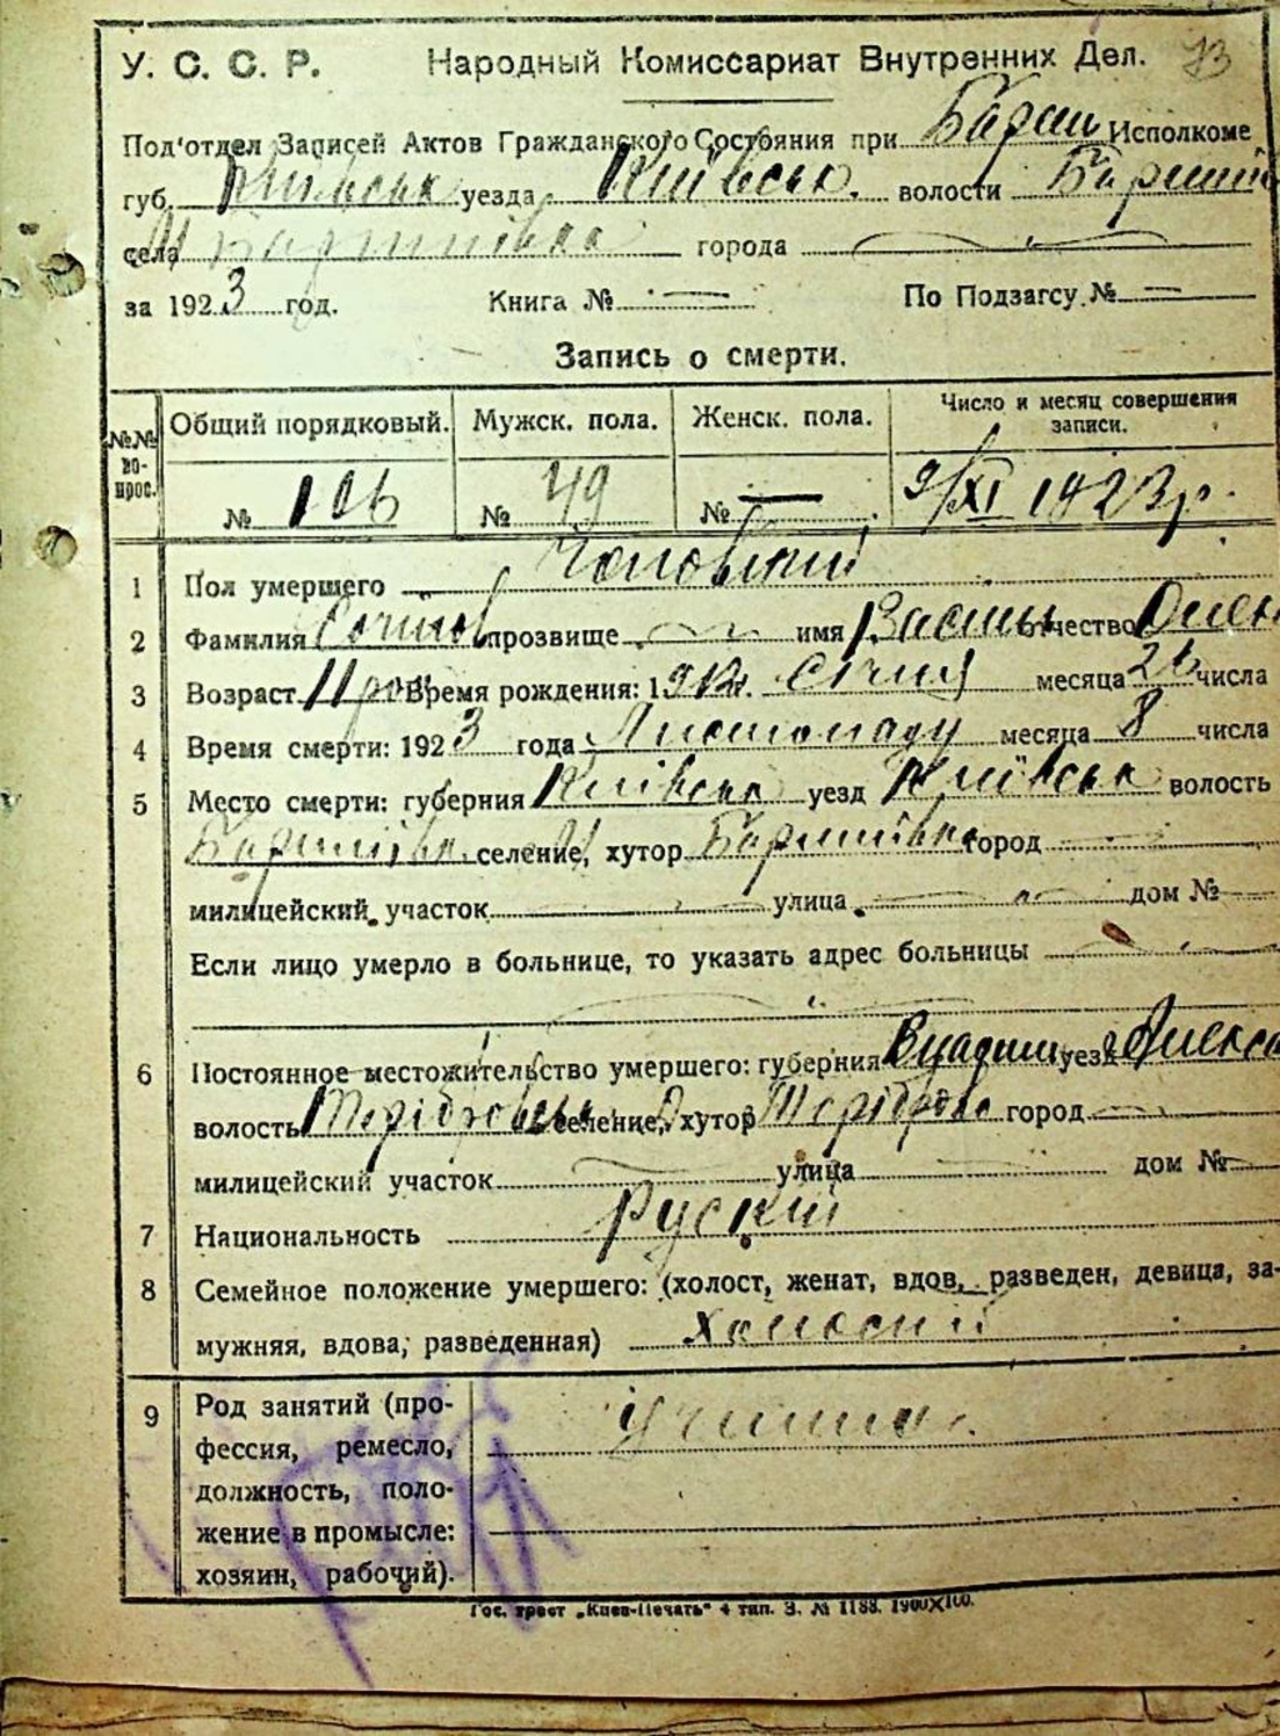 У. С. С. Р. Народный Комиссариат Внутренних Дел. 73
Под'отдел Записей Актов Гражданского Состояния при Бариш Исполкоме
губ. Київськ уезда Київськ. волости Баришів
села М Баришівка города —
за 1923 год. Книга № — По Подзагсу № —
Запись о смерти.
№№ вопрос. Общий порядковый. Мужск. пола. Женск. пола. Число и месяц совершения записи.
№ 106 № 49 № — 9/XI 1923 р.
1 Пол умершего Чоловічий
2 Фамилия прозвище — имя Василь отчество
3 Возраст 11 рок Время рождения: 1912 г. Січня месяца 26 числа
4 Время смерти: 1923 года Листопаду месяца 8 числа
5 Место смерти: губерния Київська уезд Київськ волость
Баришівк. селение, хутор М Баришівка город —
милицейский участок — улица — дом № —
Если лицо умерло в больнице, то указать адрес больницы —
—
6 Постоянное местожительство умершего: губерния Владим уезд Алекса
волость селение, хутор город —
милицейский участок — улица — дом № —
7 Национальность Руский
8 Семейное положение умершего: (холост, женат, вдов, разведен, девица, за-
мужняя, вдова, разведенная) холостий
9 Род занятий (про-
фессия, ремесло,
должность, поло-
жение в промысле:
хозяин, рабочий).
Гос. трест „Киев-Печать" 4 тип. З. № 1188. 1900X100.